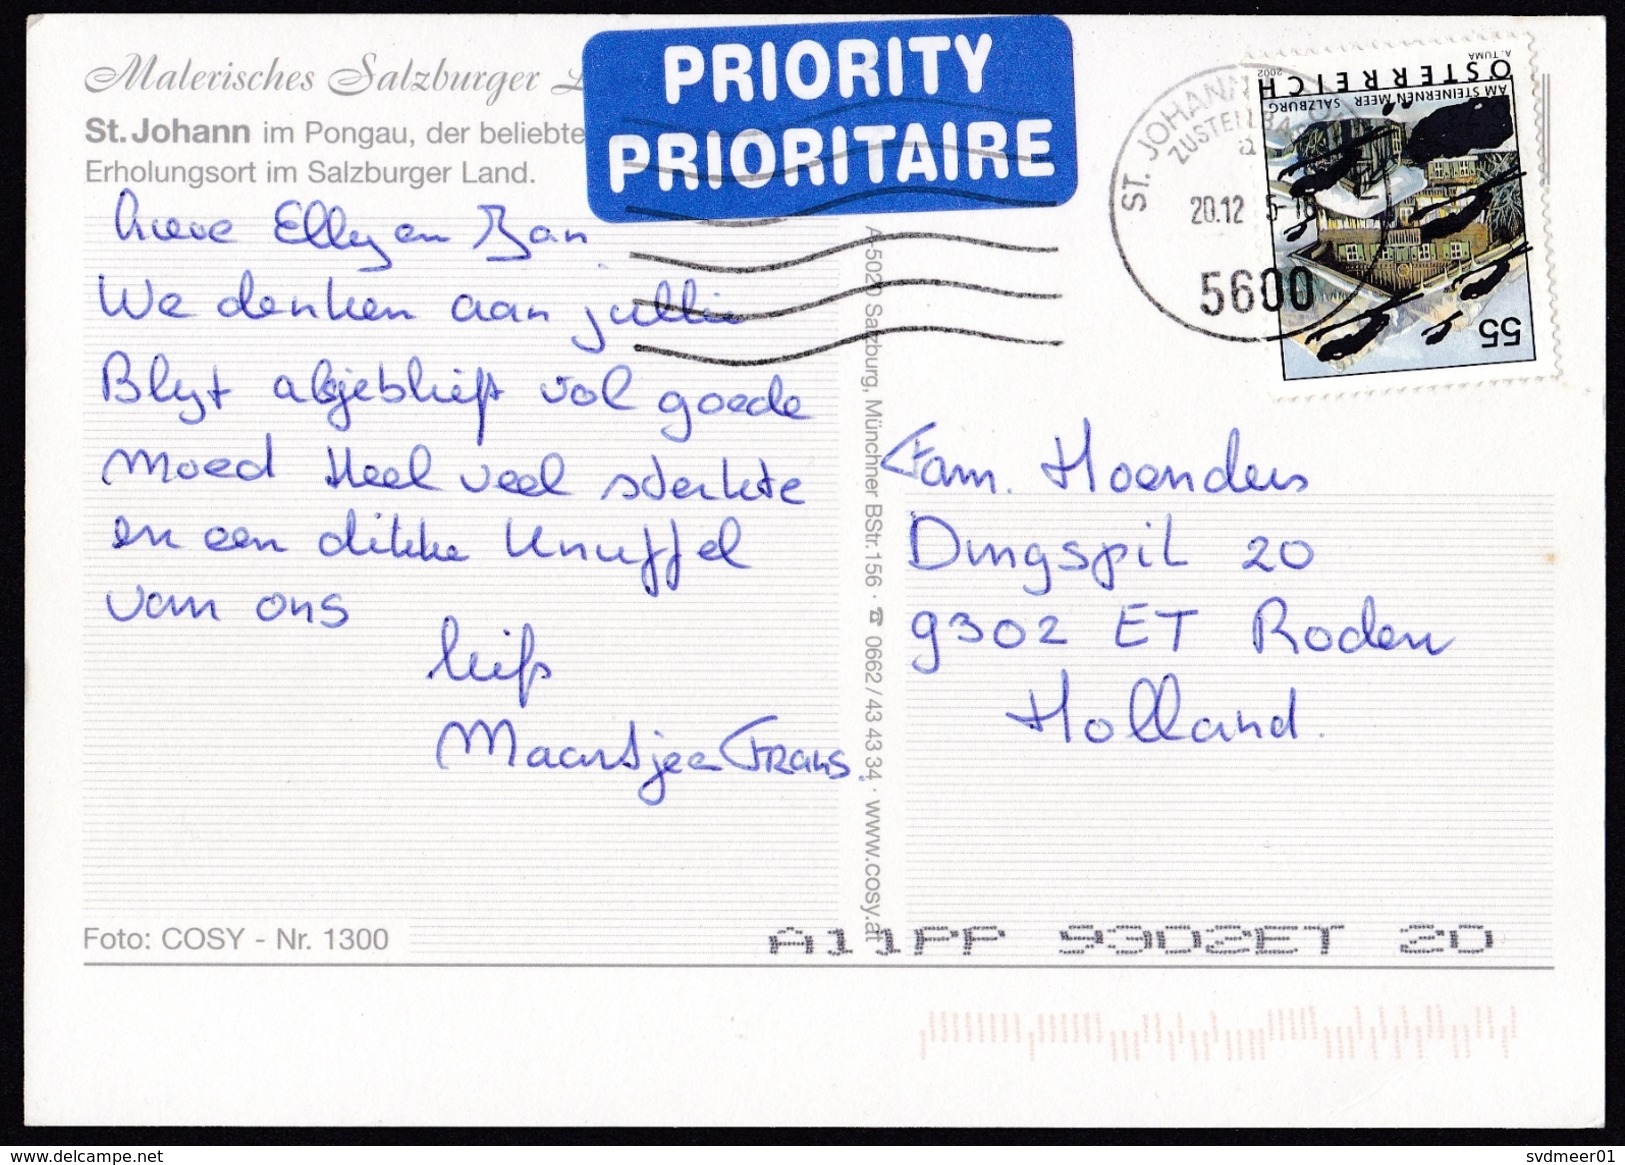 Malerisches Salzburger L
St. Johann im Pongau, der beliebte
Erholungsort im Salzburger Land.
PRIORITY
PRIORITAIRE
lieve Elly en Jan
We denken aan jullie
Blyf alsjeblieft vol goede
moed Heel veel sterkte
en een dikke Knuffel
van ons
liefs
Maartje en Frans.
A-5020 Salzburg, Münchner BStr. 156 · ☎ 0662 / 43 43 34 · www.cosy.at
ST. JOHANN
20.12 5-16
5600
A. TUMA 2002
ÖSTERREICH
AM STEINERNEN MEER SALZBURG
55
Fam. Hoenders
Dingspil 20
9302 ET Roden
Holland.
Foto: COSY - Nr. 1300
A11PP 9302ET 20
svdmeer01